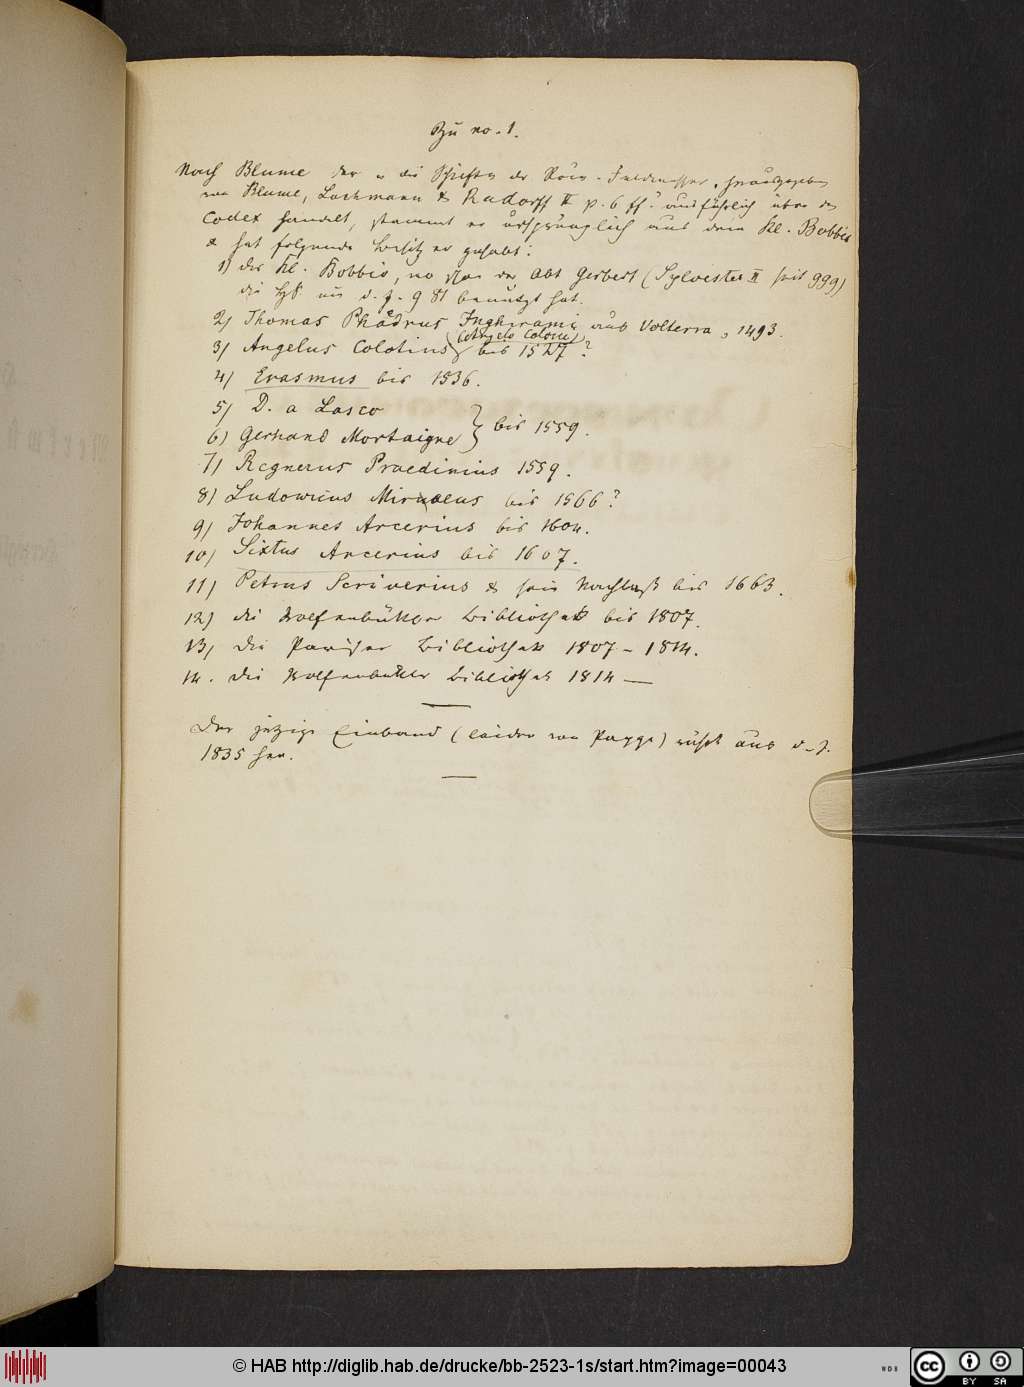 Zu no. 1.
Nach Blume der in die Schriften der Röm. Feldmesser, herausgegeben
von Blume, Lachmann & Rudorff II p. 6 ff. ausführlich über den
Codex handelt, stammt er ursprünglich aus dem Kl. Bobbio
& hat folgende Besitzer gehabt:
1) das Kl. Bobbio, wo schon der Abt Gerbert (Sylvester II seit 999)
die HS. aus d. J. 981 benutzt hat.
2) Thomas Phädrus Inghirami aus Volterra, 1493.
(Angelo Colocci)
3) Angelus Colotius bis 1527?
4) Erasmus bis 1536.
5) D. a Lasco
6) Gerhard Mortaigne } bis 1559.
7) Regnerus Praedinius 1559.
8) Ludowicus Miraeus bis 1566?
9) Johannes Arcerius bis 1604.
10) Sixtus Arcerius bis 1607.
11) Petrus Scriverius & sein Nachlaß bis 1663.
12) die Wolfenbüttler Bibliothek bis 1807.
13) die Pariser Bibliothek 1807 - 1814.
14. die Wolfenbüttler Bibliothek 1814 —
Der jetzige Einband (leider von Pappe) rührt aus d. J.
1835 her.
© HAB http://diglib.hab.de/drucke/bb-2523-1s/start.htm?image=00043
WDB
cc BY SA